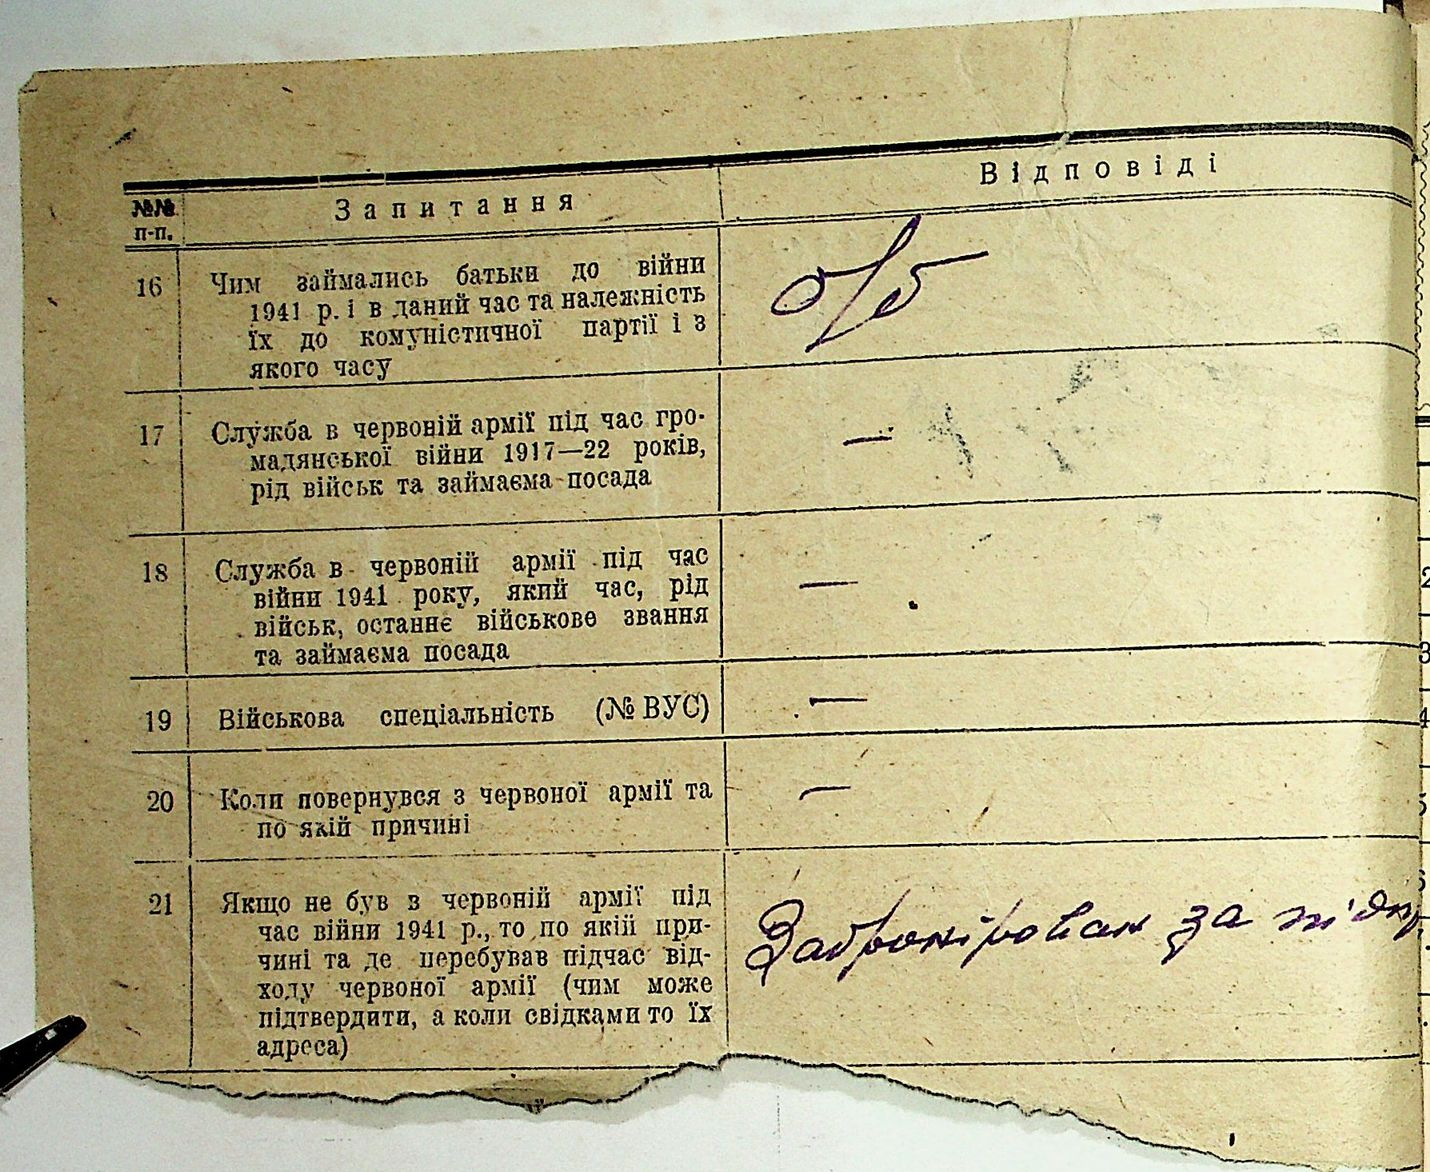 №№ п-п.
Запитання
Відповіді
16 Чим займались батьки до війни
1941 р. і в даний час та належність
їх до комуністичної партії і з
якого часу
о/б
17 Служба в червоній армії під час гро-
мадянської війни 1917—22 років,
рід військ та займаєма посада
—
18 Служба в червоній армії під час
війни 1941 року, який час, рід
військ, останнє військове звання
та займаєма посада
—
19 Військова спеціальність (№ ВУС)
—
20 Коли повернувся з червоної армії та
по якій причині
—
21 Якщо не був в червоній армії під
час війни 1941 р., то по якій при-
чині та де перебував підчас від-
ходу червоної армії (чим може
підтвердити, а коли свідками то їх
адреса)
Заброніровак за
2
3
4
5